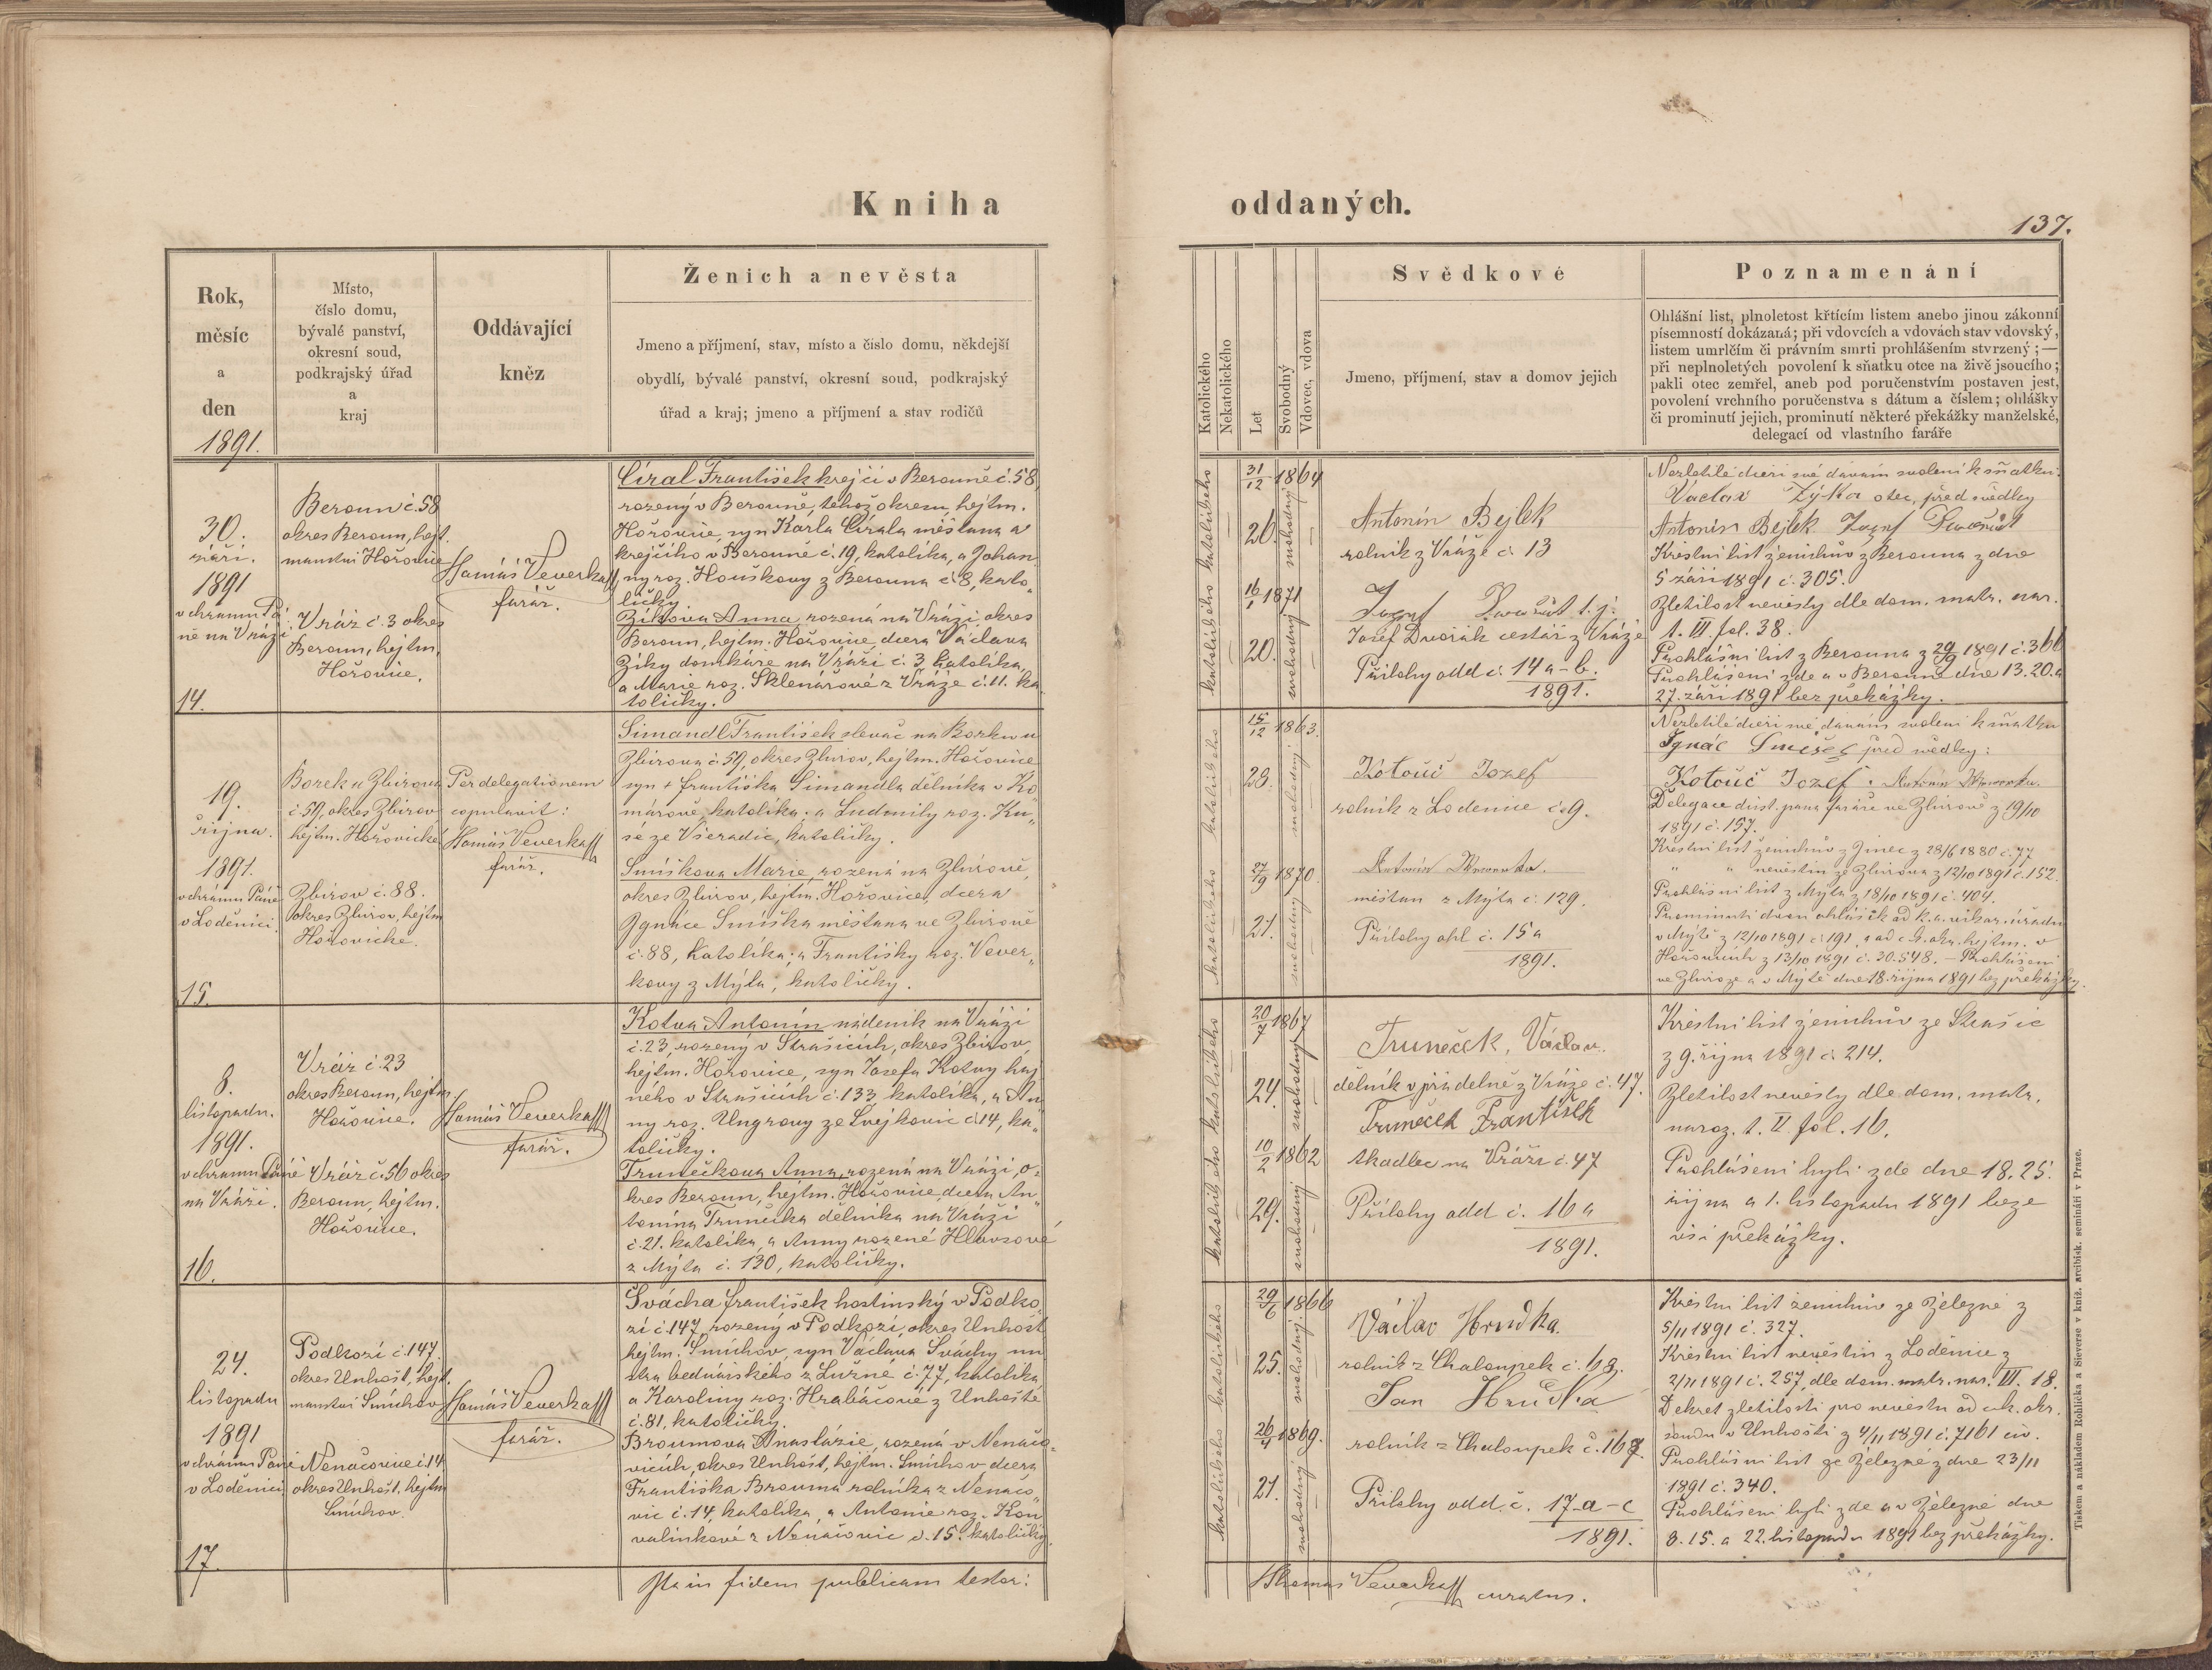 Kniha
oddaných.
137.
Rok,
měsíc
a
den
1891.
Místo,
číslo domu,
bývalé panství,
okresní soud,
podkrajský úřad
a
kraj
Oddávající
kněz
Ženich a nevěsta
Jmeno a příjmení, stav, místo a číslo domu, někdejší
obydlí, bývalé panství, okresní soud, podkrajský
úřad a kraj; jmeno a příjmení a stav rodičů
Katolického
Nekatolického
Let
Svobodný
Vdovec, vdova
Svědkové
Jmeno, příjmení, stav a domov jejich
Poznamenání
Ohlášní list, plnoletost křtícím listem anebo jinou zákonní
písemností dokázaná; při vdovcích a vdovách stav vdovský,
listem umrlčím či právním smrti prohlášením stvrzený; —
při neplnoletých povolení k sňatku otce na živě jsoucího;
pakli otec zemřel, aneb pod poručenstvím postaven jest,
povolení vrchního poručenstva s dátum a číslem; ohlášky
či prominutí jejich, prominutí některé překážky manželské,
delegací od vlastního faráře
30.
září.
1891
v chrámu Pá
ně na Vráži
14.
Beroun č. 58
okres Beroun, hejt.
manství Hořovice
Vráž č. 3 okres
Beroun, hejtm.
Hořovice.
Tomáš Veverka
farář.
Círal František krejčí v Berouně č. 58,
rozený v Berouně, téhož okresu, hejtm.
Hořovice, syn Karla Círala měšťana a
krejčího v Berouně č. 19, katolíka, a Johan
ny roz. Houškovy z Berouna č. 8, kato„
ličky.
Zíkova Anna, rozená na Vráži, okres
Beroun, hejtm. Hořovice, dcera Václava
Zíky domkáře na Vráži č. 3 katolíka,
a Marie roz. Sklenářové z Vráže č. 11. ka
toličky.
katolického
katolického
31/12 1864
26.
16/1 1871
20.
svobodný
svobodný
Antonín Bejlek
rolník z Vráže č. 13
Josef Dvořák t. j.
Josef Dvořák cestář z Vráže
Přílohy odd č. 14 a-b.
1891.
Nezletilé dceři své dávám svolení k sňatku.
Vaclav Zýka otec, před svědky
Antonín Bejlek Jozef Dvořák
Křestní list ženichův z Berouna z dne
5 září 1891 č. 305.
Zletilost nevěsty dle dom. matr. nar.
t. III. fol. 38.
Prohlášní list z Berouna z 29/9 1891 č. 366
Prohlášeni zde a v Berouně dne 13. 20. a
27. září 1891 bez překážky.
19.
října.
1891.
v chrámu Páně
v Loděnici.
15.
Borek u Zbirova
č 59, okres Zbirov
hejtm. Hořovické
Zbirov č. 88.
okres Zbirov, hejtm
Hořovické.
Per delegationem
copulavit:
Tomáš Veverka
farář.
Simandl František slevač na Borku u
Zbirova č 59, okres Zbirov, hejtm. Hořovice
syn + Františka Simandla dělníka v Ko
márově, katolíka; a Ludmily roz. Ku„
sé ze Všeradic, katoličky.
Smíškova Marie, rozená na Zbirově,
okres Zbirov, hejtm. Hořovice, dcera
Ignáce Smíška měšťana ve Zbirově
č. 88, katolíka; a Františky roz. Vever„
kovy z Mýta, katoličky.
katolického
katolického
15/12 1863.
28.
27/9 1870.
21.
svobodný
svobodný
Kotouč Jozef
rolník z Lodenice č. 9.
měšťan z Mýta č. 129.
Přílohy ohl č. 15 a
1891.
Nezletilé dceři mé dávám svolení k sňatku
Ignác Smíšek před svědky:
Kotouč Jozef.
Delegace důst. pana faráře ve Zbirově z 19/10
1891 č. 157.
Křestní list ženichův z Jinec z 28/6 1880 č. 77
„ „ nevěstin ze Zbirova z 12/10 1891 č. 152.
Prohlášní list z Mýta z 18/10 1891 č. 404.
Prominutí dvou ohlášek od k. a. vikar. úřadu
v Mýtě z 12/10 1891 č. 191, a od c. k. okr. hejtm. v
Hořovicích z 13/10 1891 č. 30.548. — Prohlášeni
ve Zbirově a v Mýtě dne 18. října 1891 bez překážky.
8.
listopadu.
1891.
v chrámu Páně
na Vráži.
16.
Vráž č. 23
okres Beroun, hejtm.
Hořovice.
Vráž č. 56 okres
Beroun, hejtm.
Hořovice.
Tomáš Veverka
farář.
Kotva Antonín nádeník na Vráži
č. 23, rozený v Strašicích, okres Zbirov,
hejtm. Hořovice, syn Josefa Kotvy haj
ného v Strašicích č. 133 katolíka, a An
ny roz. Ungrovy ze Švejkovic č. 14, ka„
toličky.
Trunečkova Anna, rozená na Vráži, o„
kres Beroun, hejtm. Hořovice, dcera An„
tonína Trunečka dělníka na Vráži
č. 21. katolíka, a Anny rozené Hlavsové
z Mýta č. 130, katoličky.
katolického
katolického
20/7 1867
24.
10/2 1862
29.
svobodný
svobodný
Truneček, Václav.
dělník v přádelně z Vráže č. 47.
Truneček František
tkadlec na Vráži č. 47
Přílohy odd č. 16 a
1891.
Křestní list ženichův ze Strašic
z 9. října 1891 č. 214.
Zletilost nevěsty dle dom. matr.
naroz. t. II fol. 16.
Prohlášeni byli zde dne 18. 25.
října a 1. listopadu 1891 beze
vší překážky.
24.
listopadu
1891
v chrámu Páně
v Loděnici
17.
Podkozí č. 147
okres Unhošť, hejt.
manství Smíchov
Nenačovice č. 14
okres Unhošť, hejtm
Smíchov.
Tomáš Veverka
farář.
Švácha František hostinský v Podko„
zí č. 147, rozený v Podkozí, okres Unhošť
hejtm. Smíchov, syn Václava Šváchy mi
stra bednářského z Lužné č. 77, katolíka
a Karoliny roz. Hrabáčové z Unhoště
č. 81, katoličky.
Broumova Anastázie, rozená v Nenačo„
vicích, okres Unhošť, hejtm. Smíchov dcera
Františka Brouma rolníka z Nenačo„
vic č. 14, katolíka, a Antonie roz. Kon
valinkové z Nenačovic č. 15. katoličky.
katolického
katolického
29/6 1866
25.
26/4 1869.
21.
svobodný.
svobodný
Václav Hrudka.
rolník z Chaloupek č. 68.
Jan Hrudka
rolník z Chaloupek č. 167.
Přílohy odd. č. 17 a-c
1891.
Křestní list ženichův ze Železné z
5/11 1891 č. 327.
Křestní list nevěstin z Loděnice z
2/11 1891 č. 257, dle dom. matr. nar. III. 18.
Dekret zletilosti pro nevěstu od c. k. okr.
soudu v Unhošti z 4/11 1891 č. 7161 civ.
Prohlášní list ze Železné z dne 23/11
1891 č. 340.
Prohlášeni byli zde a v Železné dne
8. 15. a 22. listopadu 1891 bez překážky.
Ita in fidem publicam testor:
Thomas Veverka curatus.
Tiskem a nákladem Rohlíčka a Sieverse v kníž. arcibisk. semináři v Praze.